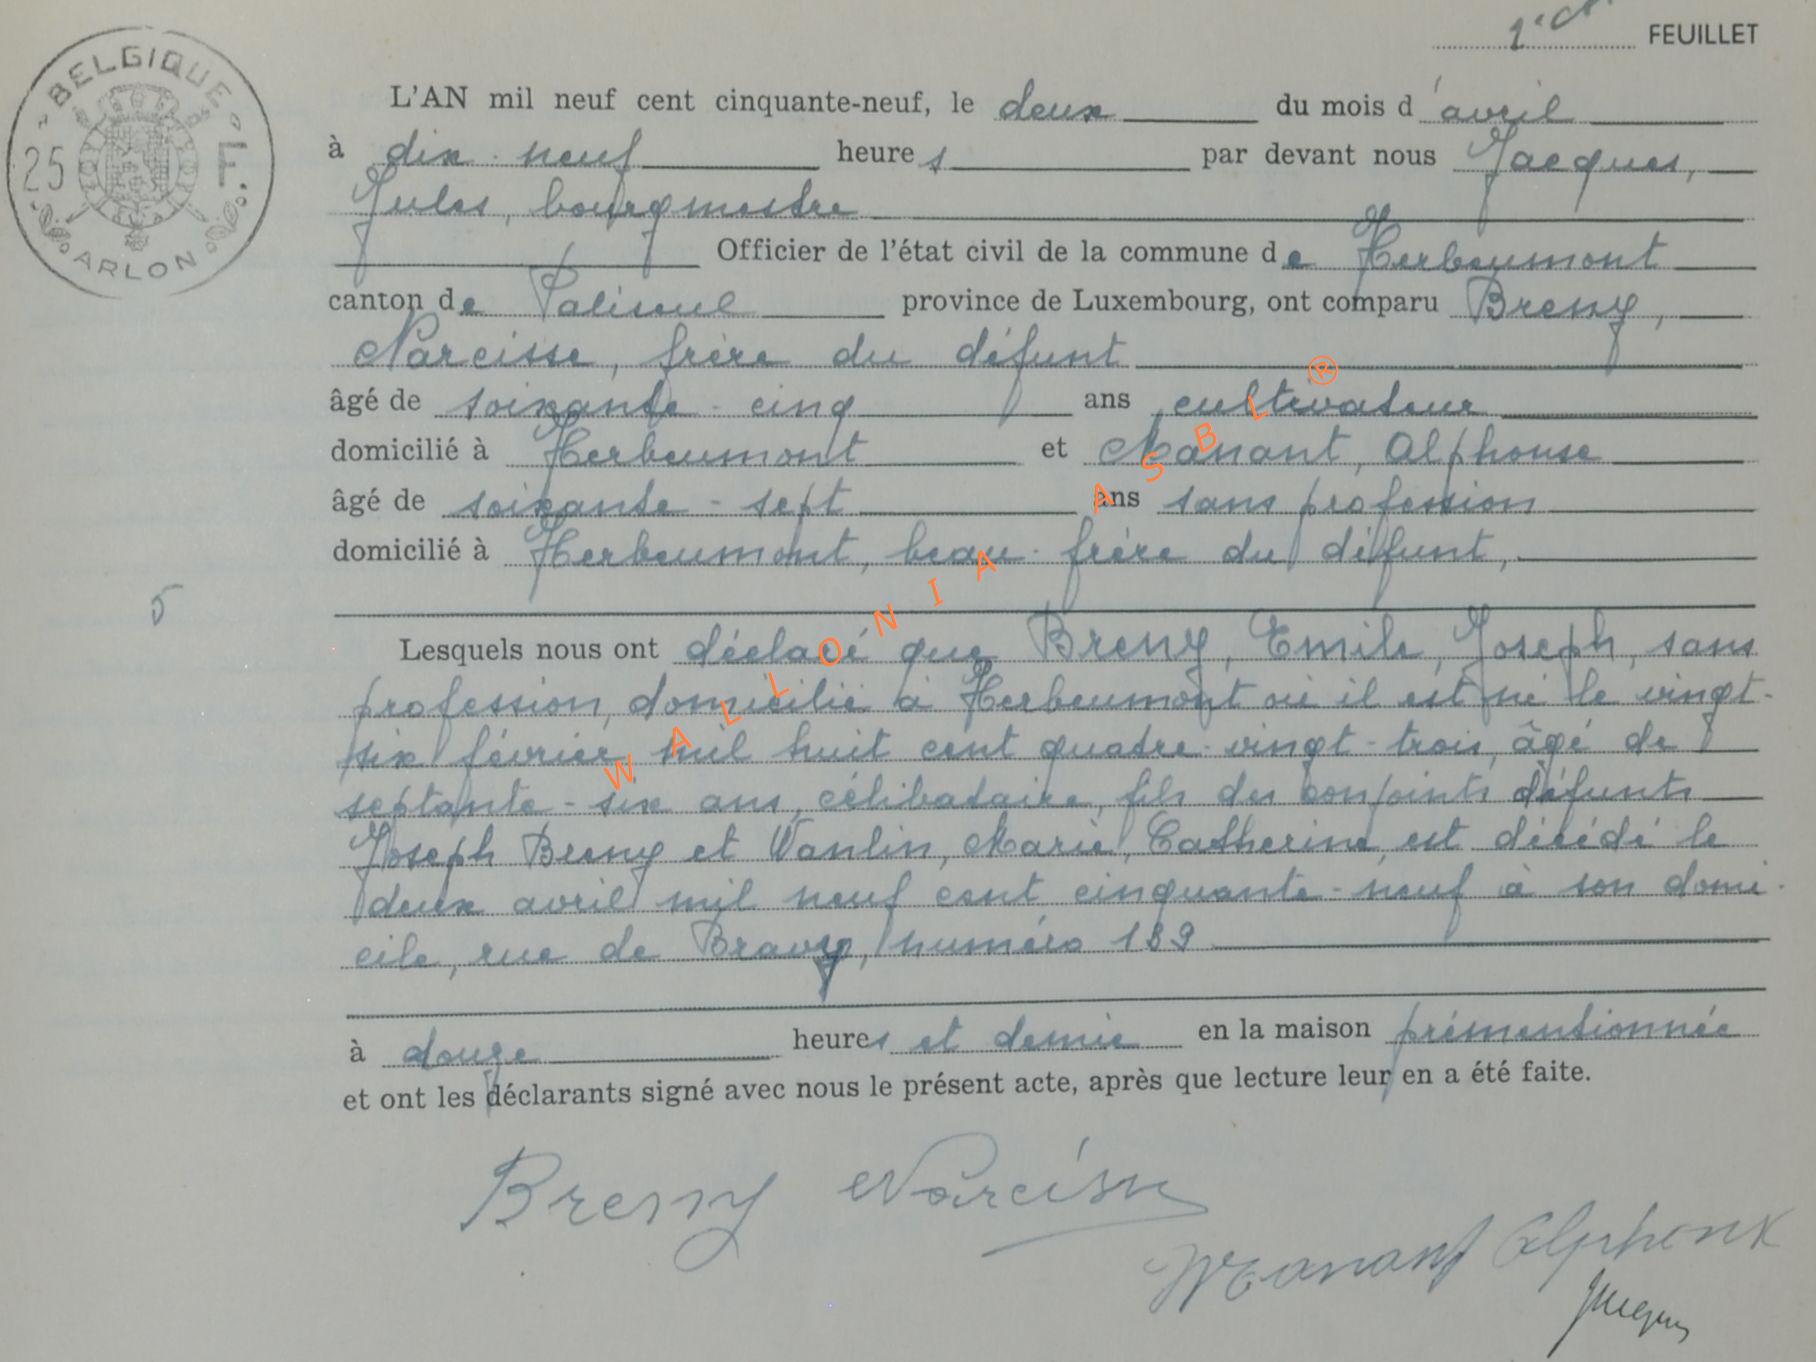 1er FEUILLET
BELGIQUE
25 F.
ARLON
L'AN mil neuf cent cinquante-neuf, le deux du mois d'avril
à dix-neuf heures par devant nous Jacques,
Jules, bourgmestre
Officier de l'état civil de la commune de Herbeumont
canton de Paliseul province de Luxembourg, ont comparu Breny,
Narcisse, frère du défunt
âgé de soixante-cinq ans, cultivateur
domicilié à Herbeumont et Manant, Alphonse
âgé de soixante-sept ans sans profession
domicilié à Herbeumont, beau-frère du défunt,
5
Lesquels nous ont déclaré que Breny, Emile, Joseph, sans
profession, domicilié à Herbeumont où il est né le vingt-
six février mil huit cent quatre-vingt-trois, âgé de
septante-six ans, célibataire, fils des conjoints défunts
Joseph Breny et Wanlin, Marie, Catherine, est décédé le
deux avril mil neuf cent cinquante-neuf à son domi-
cile, rue de Bravy, numéro 189
à douze heures et demie en la maison prémentionnée
et ont les déclarants signé avec nous le présent acte, après que lecture leur en a été faite.
Breny Narcisse
Manant Alphonse
Jacques
WALLONIA ASBL ®